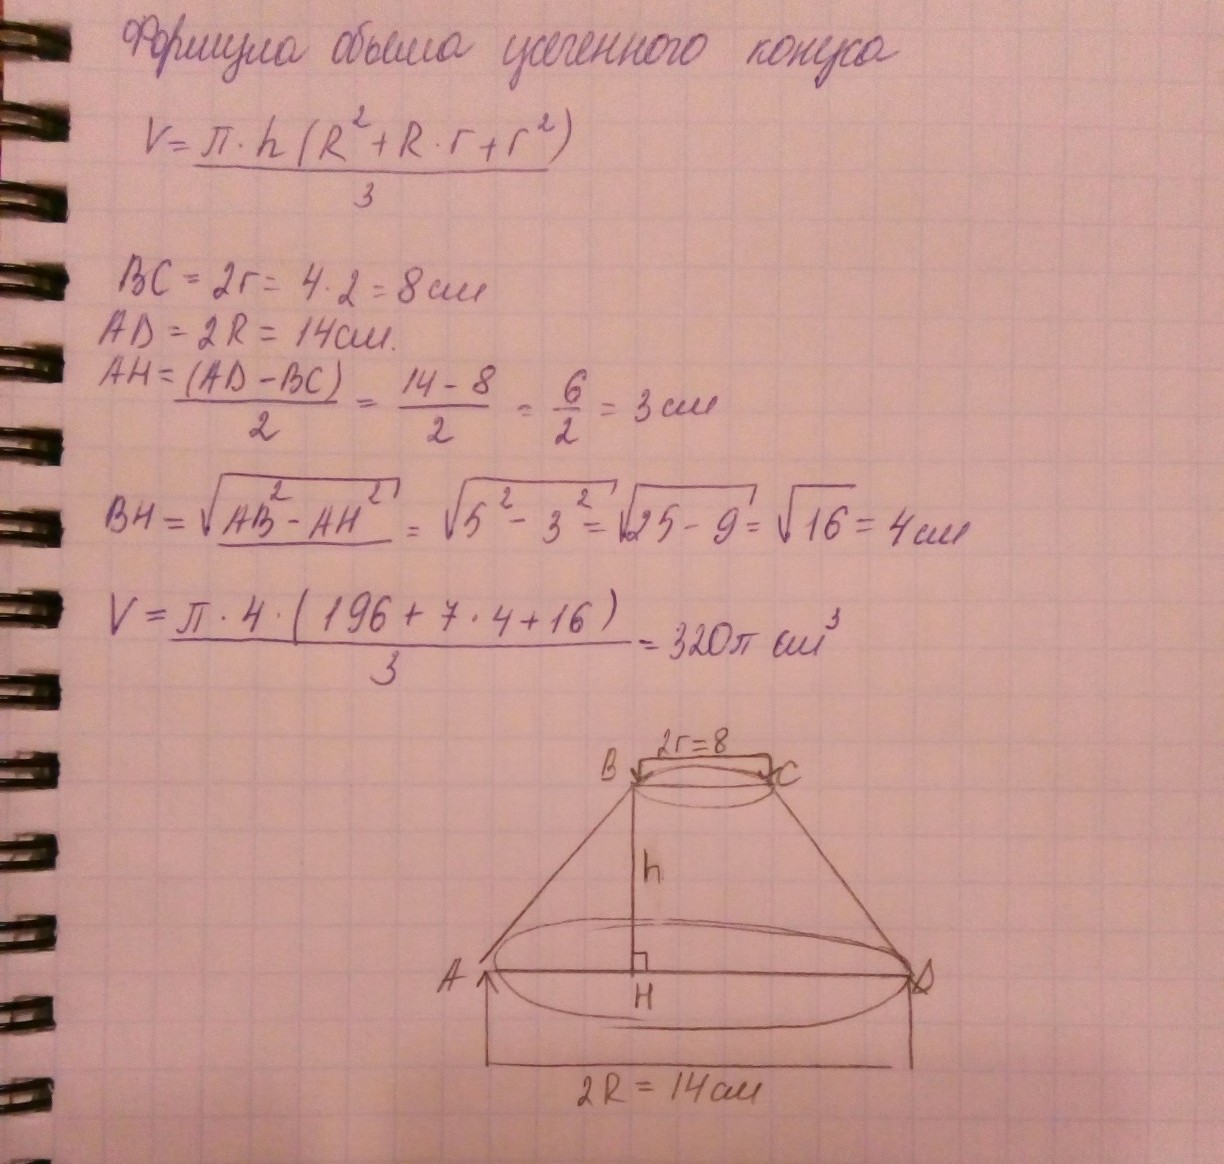 Формула объема усеченного конуса
V = π·h(R²+R·r+r²)/3
BC = 2r = 4·2 = 8 см
AD = 2R = 14 см.
AH = (AD-BC)/2 = 14-8/2 = 6/2 = 3 см
BH = √AB²-AH² = √5²-3² = √25-9 = √16 = 4 см
V = π·4·(196+7·4+16)/3 = 320π см³
2r=8
B C
h
A H D
2R = 14 см